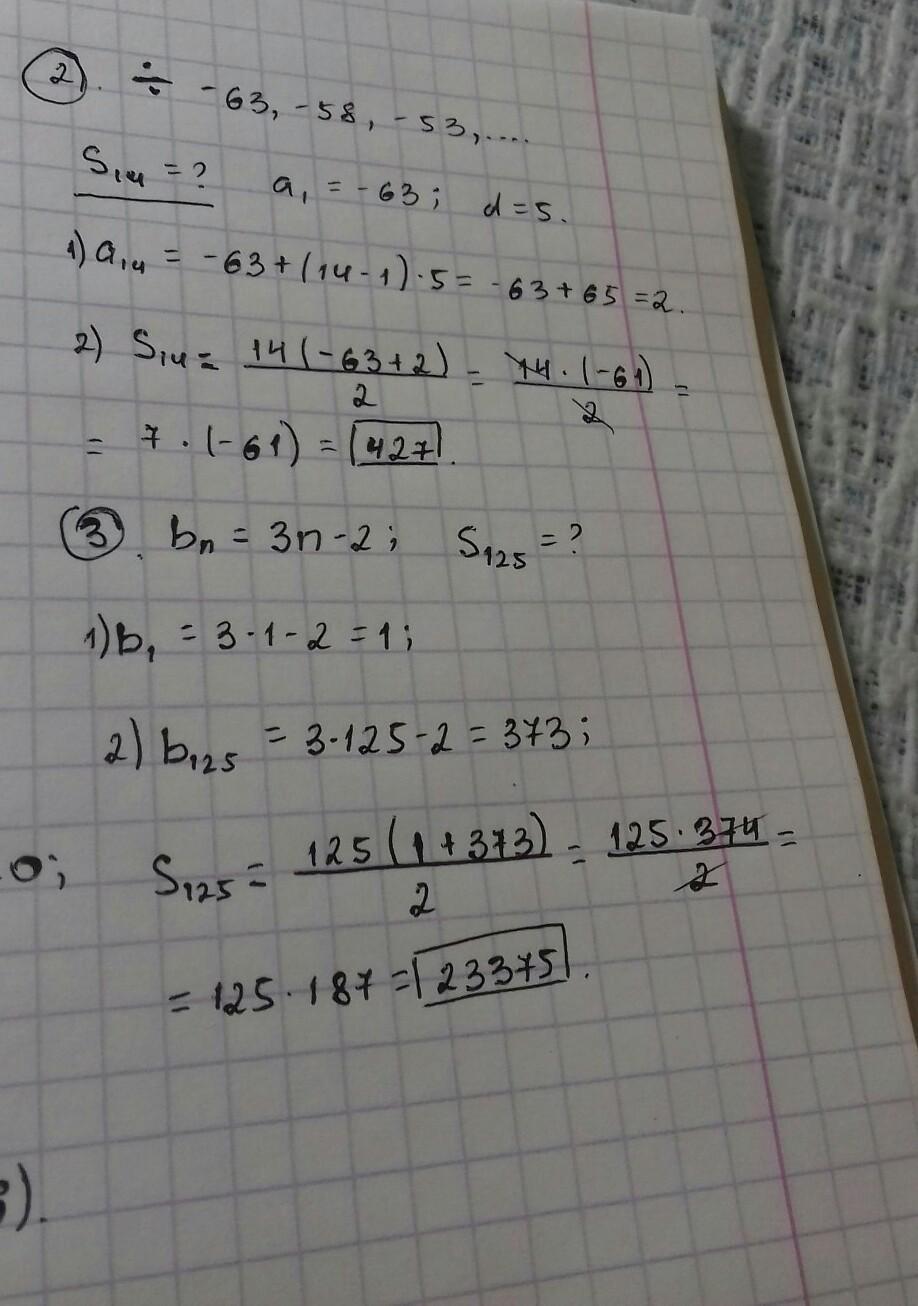 2). ÷ -63, -58, -53,....
S₁₄ = ? a₁ = -63; d = 5.
1) a₁₄ = -63+(14-1)·5 = -63+65 = 2.
2) S₁₄ = 14(-63+2)/2 = 14·(-61)/2 =
= 7·(-61) = 427.
3. bₙ = 3n-2; S₁₂₅ = ?
1) b₁ = 3·1-2 = 1;
2) b₁₂₅ = 3·125-2 = 373;
0; S₁₂₅ = 125(1+373)/2 = 125·374/2 =
= 125·187 = 23375.
).